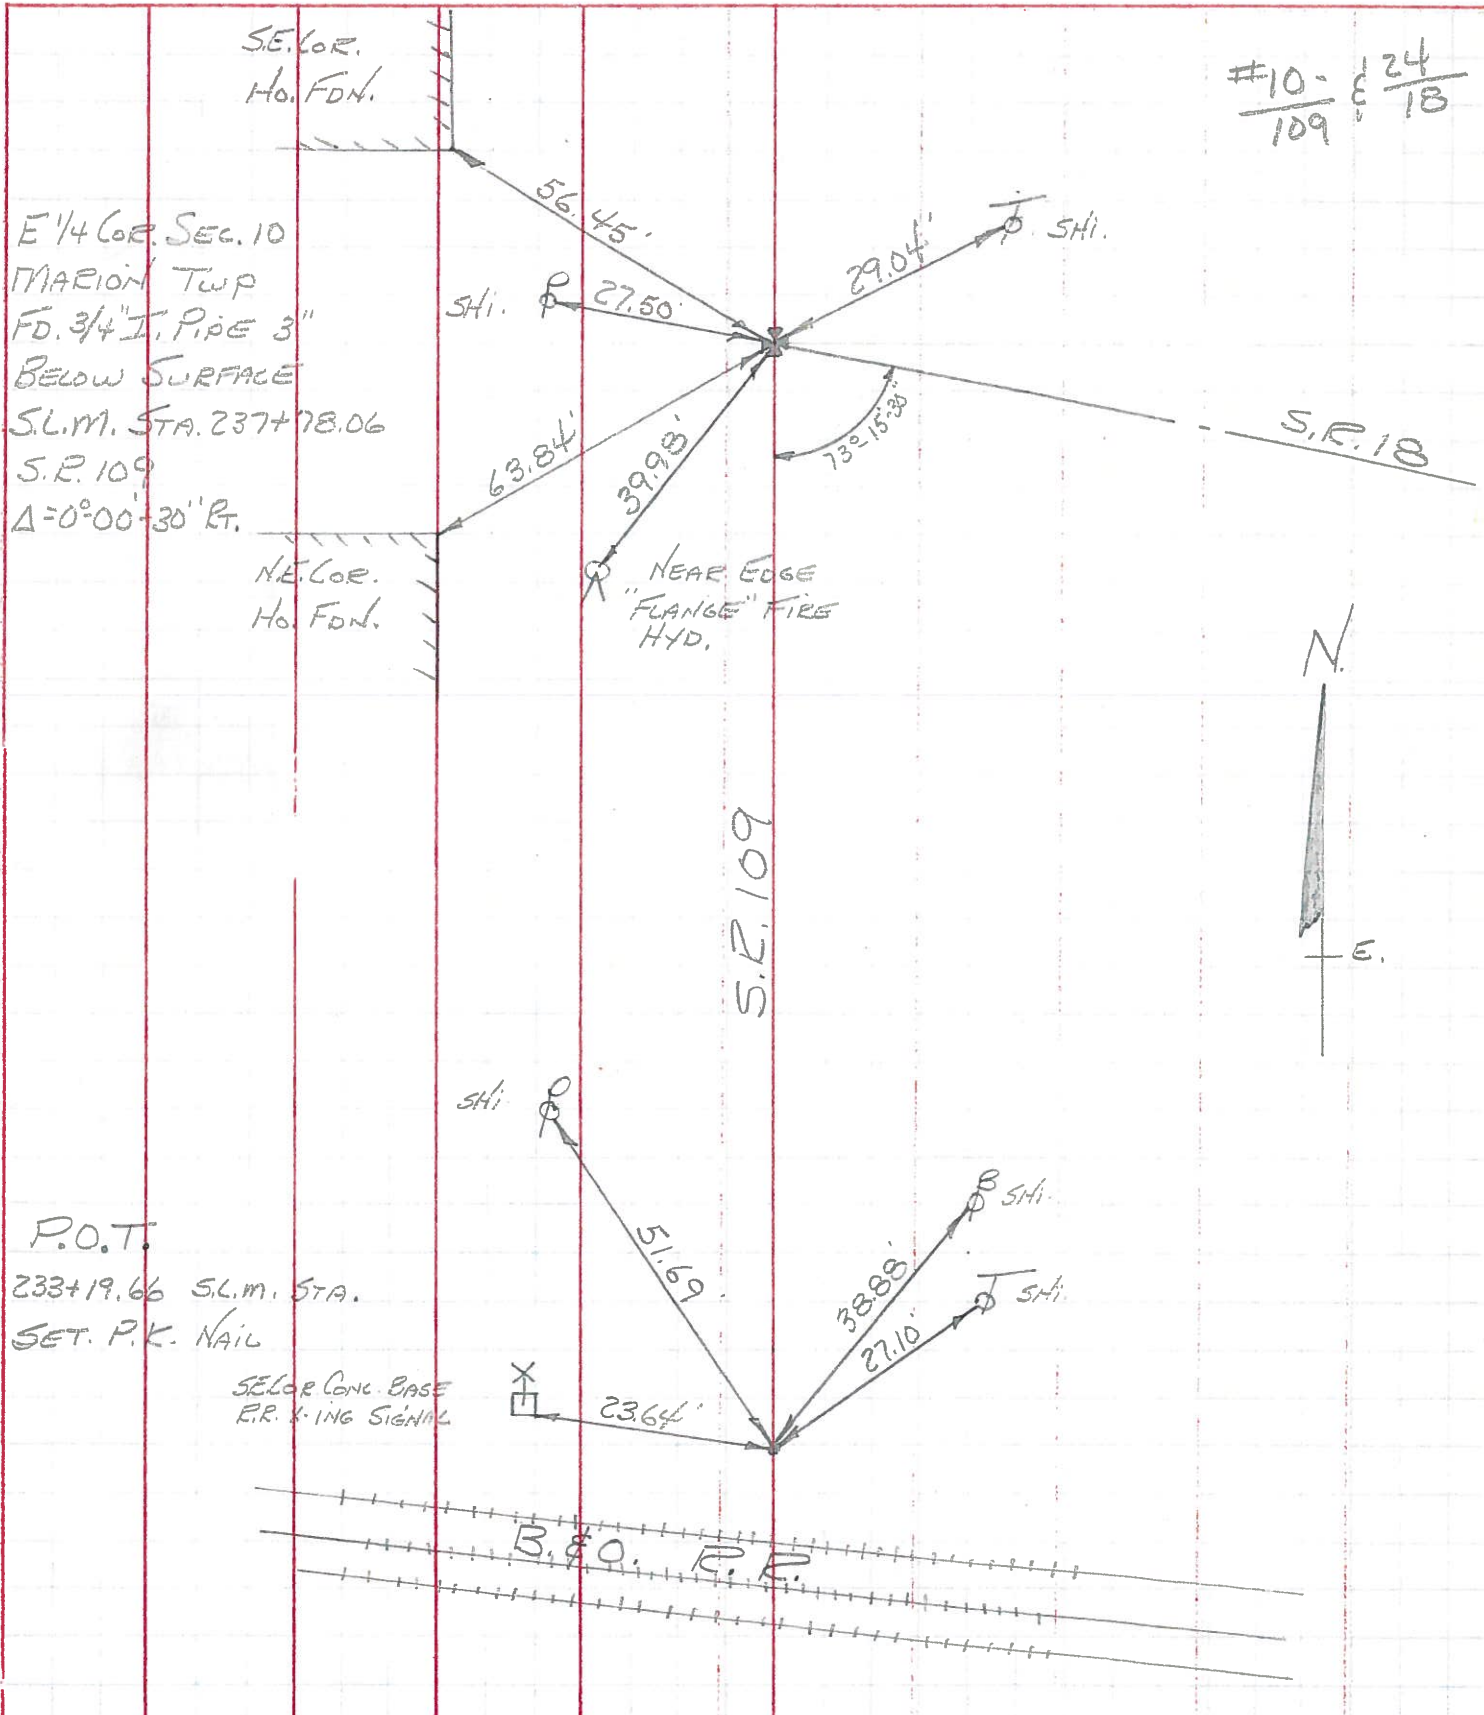 S.E. COR.
HO. FDN.
#10 - & 24
109 18
56.45'
29.04'
SHI.
E 1/4 COR. SEC. 10
MARION TWP
FD. 3/4" I. PIPE 3"
BELOW SURFACE
S.L.M. STA. 237+78.06
S.R. 109
Δ=0°00'-30" RT.
SHI.
P
27.50'
63.84'
39.98'
73°-15'-30"
S.R. 18
N.E. COR.
HO. FDN.
NEAR EDGE
"FLANGE" FIRE
HYD.
N.
E.
S.R. 109
SHI
P
51.69'
B SHI.
38.88'
T SHI.
27.10'
P.O.T.
233+19.66 S.L.M. STA.
SET. P.K. NAIL
S.E. COR CONC. BASE
R.R. X-ING SIGNAL
23.64'
B. & O. R. R.